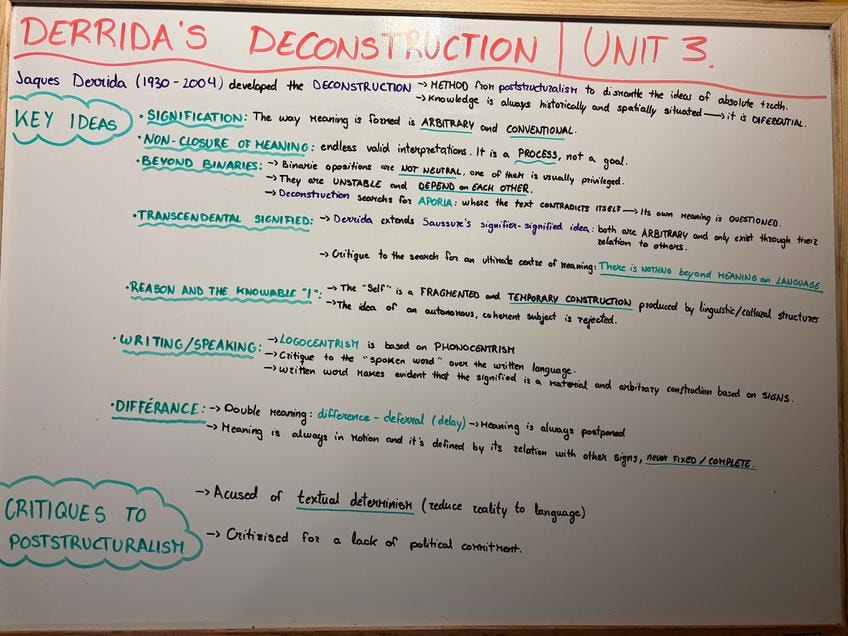 DERRIDA'S DECONSTRUCTION | UNIT 3.
Jaques Derrida (1930-2004) developed the DECONSTRUCTION → METHOD from poststructuralism to dismantle the ideas of absolute truth.
→ Knowledge is always historically and spatially situated → it is DIFERENTIAL.
KEY IDEAS
• SIGNIFICATION: The way meaning is formed is ARBITRARY and CONVENTIONAL.
• NON-CLOSURE OF MEANING: endless valid interpretations. It is a PROCESS, not a goal.
• BEYOND BINARIES: → Binarie opositions are NOT NEUTRAL, one of them is usually privileged.
→ They are UNSTABLE and DEPEND on EACH OTHER.
→ Deconstruction searchs for APORIA: where the text CONTRADICTS ITSELF → Its own meaning is QUESTIONED.
• TRANSCENDENTAL SIGNIFIED: → Derrida extends Saussure's signifier-signified idea: both are ARBITRARY and only exist through their
relation to others.
→ Critique to the search for an ultimate centre of meaning: There is NOTHNG beyond MEANING on LANGUAGE
• REASON AND THE KNOWABLE "I": → The "Self" is a FRAGMENTED and TEMPORARY CONSTRUCTION produced by linguistic/cultural structures
→ The idea of an autonomous, coherent subject is rejected.
• WRITING/SPEAKING: → LOGOCENTRISM is based on PHONOCENTRISM
→ Critique to the "spoken word" over the written language.
→ Written word makes evident that the signified is a material and arbitrary construction based on SIGNS.
• DIFFÉRANCE: → Double meaning: difference - deferral (delay) → Meaning is always postponed
→ Meaning is always in motion and it's defined by its relation with other signs, never FIXED / COMPLETE.
CRITIQUES TO
POSTSTRUCTURALISM
→ Acused of textual determinism (reduce reality to language)
→ Critizised for a lack of political commitment.